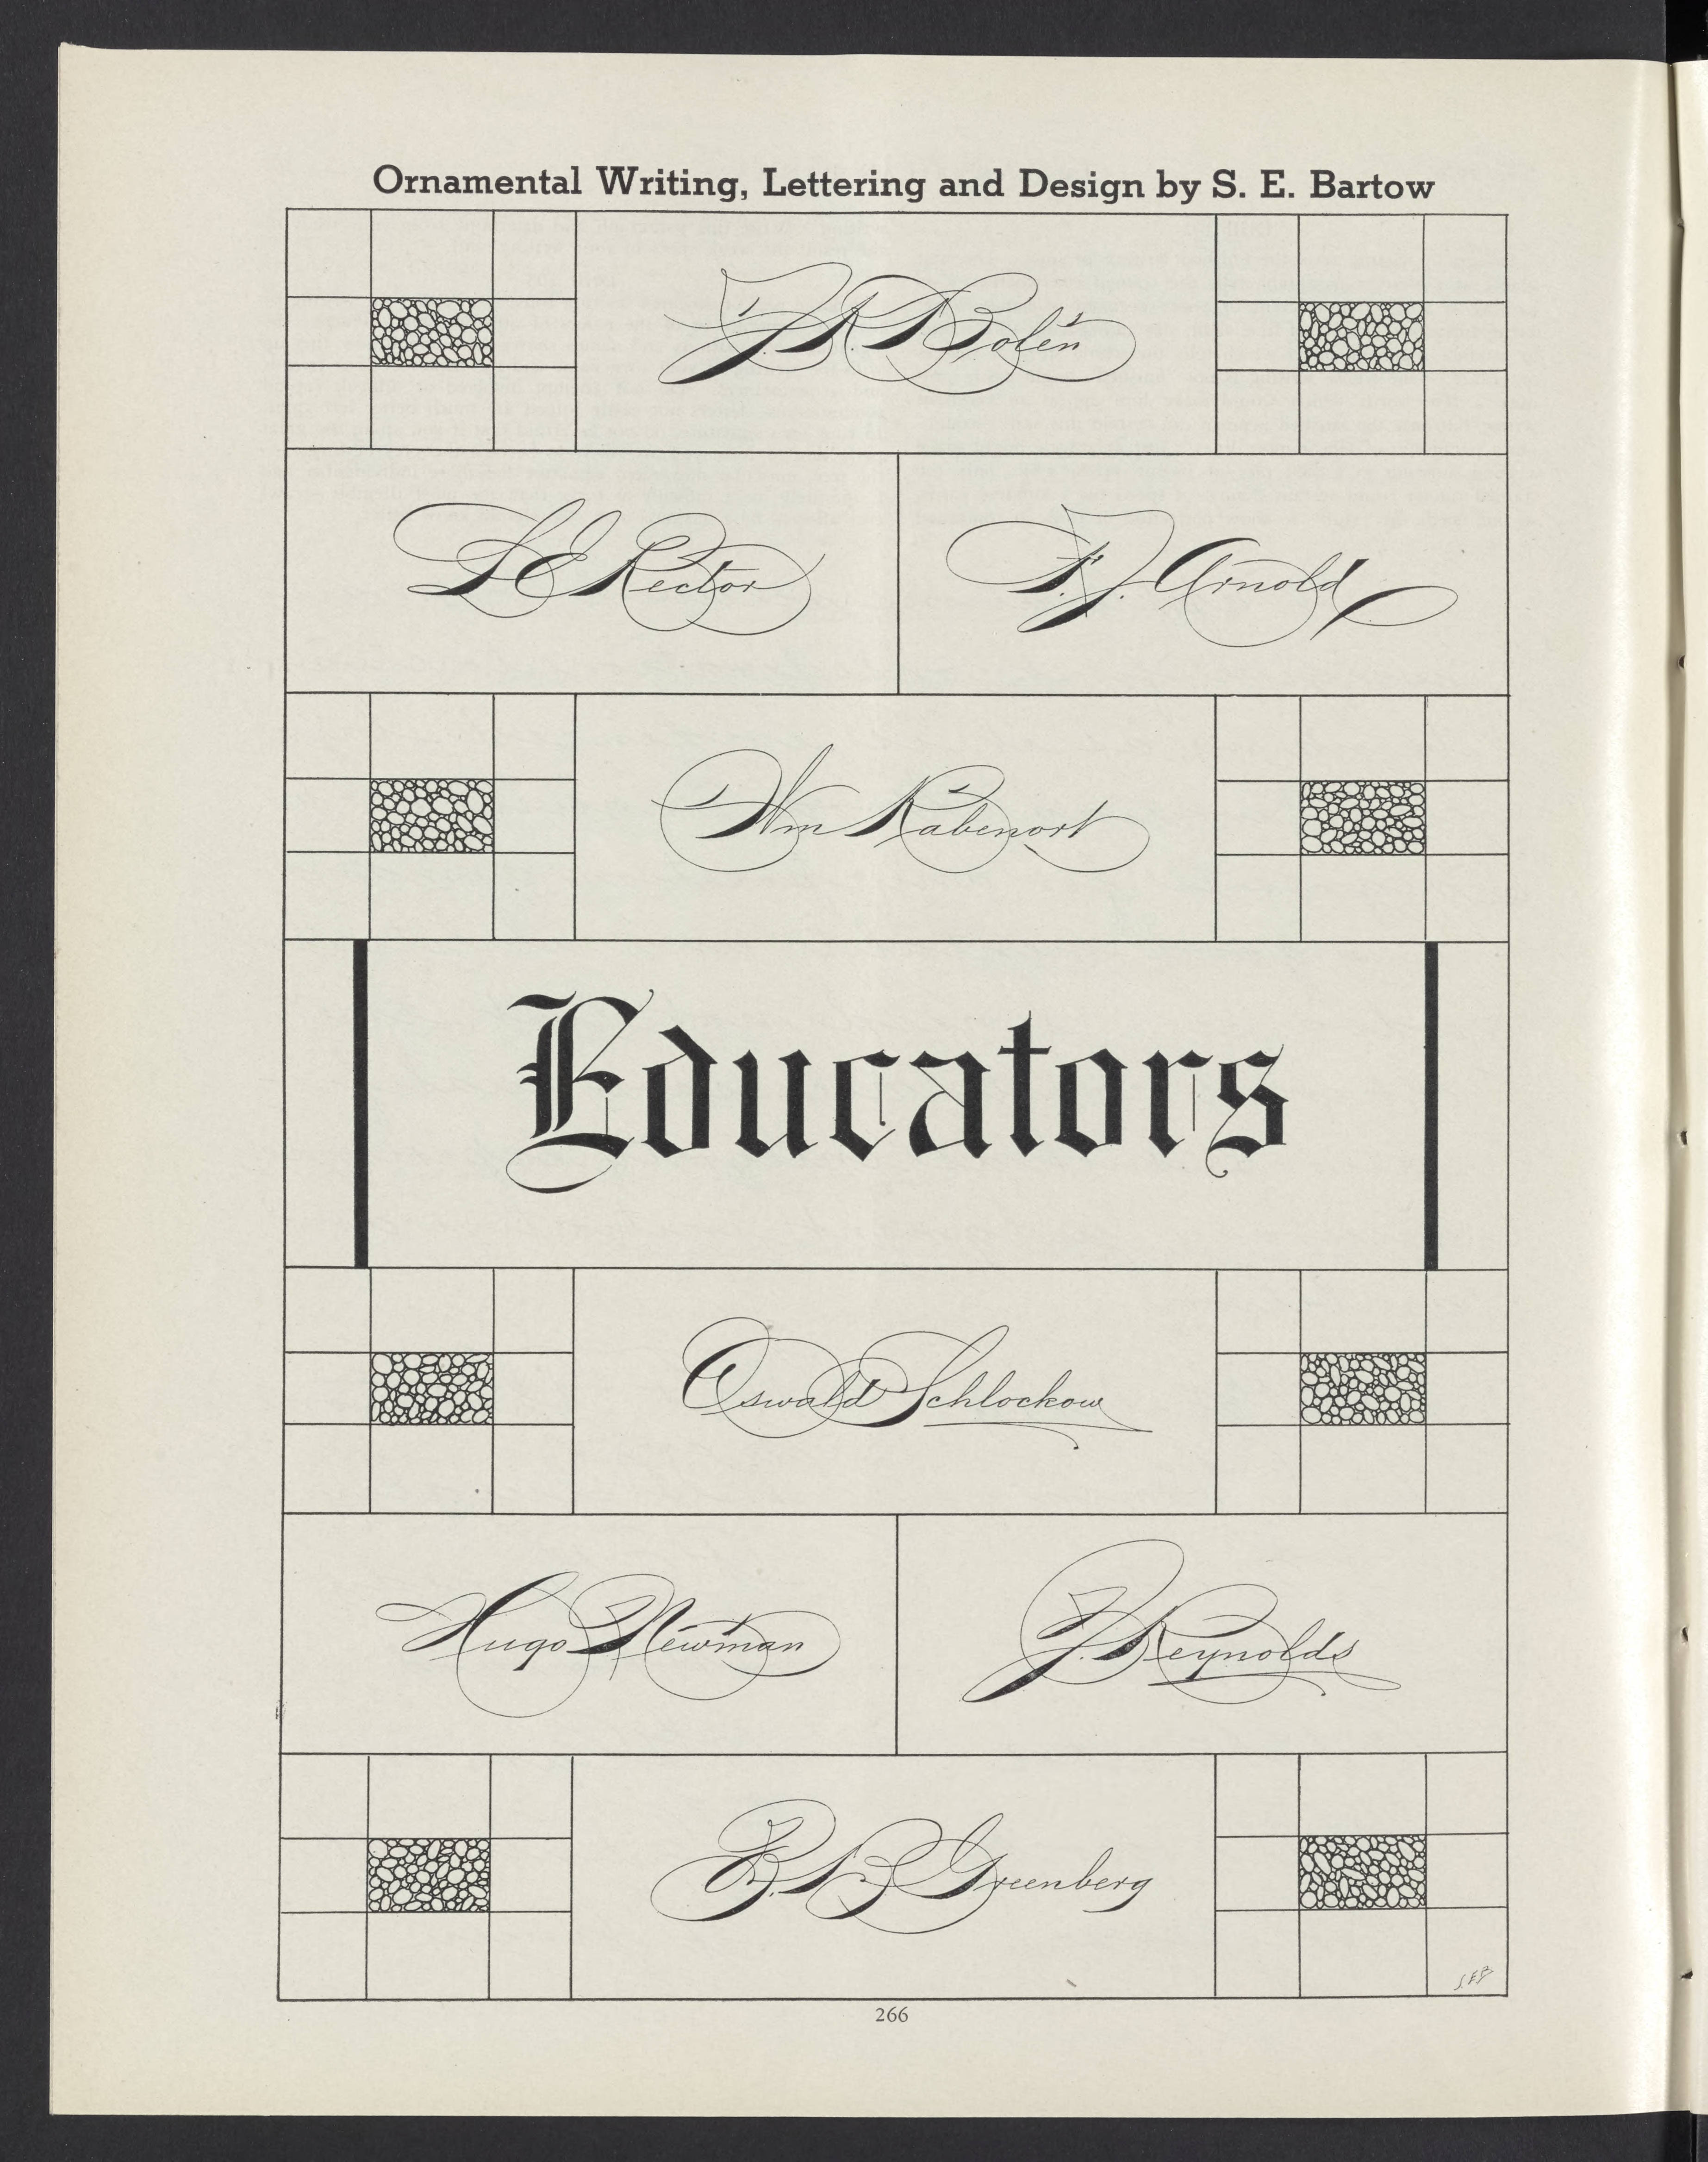 Ornamental Writing, Lettering and Design by S. E. Bartow
J. R. Bolen
L E Rector
F. J. Arnold
Wm Rabenort
Educators
Oswald Schlockow
Hugo Newman
J. Reynolds
B. Greenberg
SEB
266